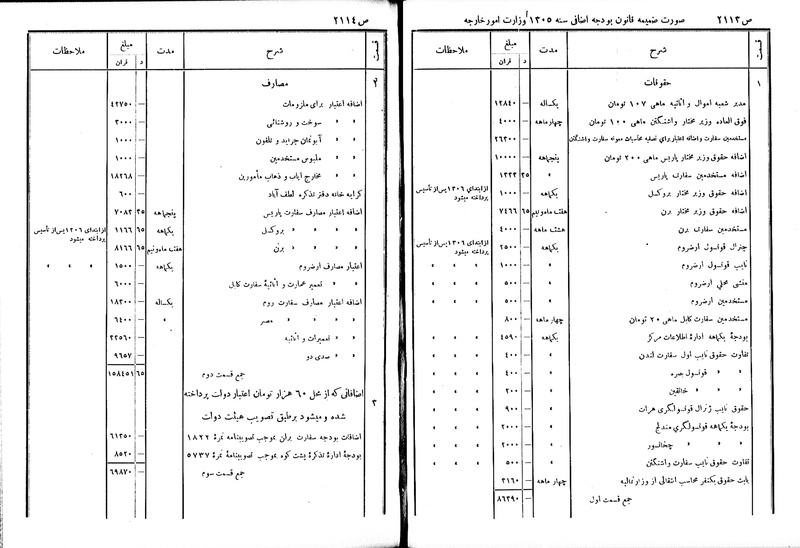 ص ۲۱۱۳ صورت ضمیمه قانون بودجه اضافی سنه ۱۳۰۵ وزارت امور خارجه
قسمت شرح مدت مبلغ ملاحظات
د قران
۱ حقوقات
مدیر شعبه اموال و اثاثیه ماهی ۱۰۷ تومان یکساله — ۱۲۸۴۰
فوق العاده وزیر مختار واشنگتن ماهی ۱۰۰ تومان چهارماهه — ۴۰۰۰
مستخدمین سفارت واشنگتن و اضافه اعتبار برای تصفیه محاسبات معوقه سفارت واشنگتن — ۲۶۳۰۰
اضافه حقوق وزیر مختار پاریس ماهی ۲۰۰ تومان پنجماهه — ۱۰۰۰۰
اضافه مستخدمین سفارت پاریس » ۳۵ ۱۳۳۳
اضافه حقوق وزیر مختار بروکسل یکماهه — ۱۰۰۰ از ابتدای ۱۳۰۶ پس از تأسیس پرداخته میشود
اضافه حقوق وزیر مختار برن هفت ماه و نیم ۶۵ ۷۴۶۶
مستخدمین سفارت برن هشت ماهه — ۴۰۰۰
جنرال قونسول ارضروم یکماهه — ۲۵۰۰ از ابتدای ۱۳۰۶ پس از تأسیس پرداخته میشود
نایب قونسول ارضروم » — ۱۰۰۰ » » »
منشی محلی ارضروم » — ۵۰۰ » » »
مستخدمین ارضروم » — ۵۰۰ » » »
مستخدمین سفارت کابل ماهی ۲۰ تومان چهار ماهه — ۸۰۰
بودجهٔ یکماهه ادارهٔ اطلاعات مرکز یکماهه — ۴۵۹۰ » » »
تفاوت حقوق نایب اول سفارت لندن » — ۴۰۰ » » »
» » قونسول بصره » — ۴۰۰ » » »
» » » خانقین » — ۲۰۰ » » »
حقوق نایب ژنرال قونسولگری هرات » — ۹۰۰ » » »
بودجهٔ یکماهه قونسولگری مندلج » — ۲۰۰۰ » » »
» » » » — ۲۰۰۰ » » »
تفاوت حقوق نایب سفارت واشنگتن » — ۵۰۰ » » »
بابت حقوق یکنفر محاسب انتقالی از وزارت مالیه چهار ماهه — ۳۱۶۰
جمع قسمت اول — ۸۶۳۹۰
ص ۲۱۱۴
قسمت شرح مدت مبلغ ملاحظات
د قران
۲ مصارف
اضافه اعتبار برای ملزومات — ۴۲۷۵۰
» » سوخت و روشنائی — ۳۰۰۰
» » آبونمان جراید و تلفون — ۱۰۰۰
» » ملبوس مستخدمین — ۱۰۰۰
» » مخارج ایاب و ذهاب مأمورین — ۱۸۲۶۸
کرایه خانه دفتر تذکره لطف آباد — ۶۰۰
اضافه اعتبار مصارف سفارت پاریس پنجماهه ۳۵ ۷۰۸۳
» » » » بروکسل یکماهه ۶۵ ۱۱۶۶ از ابتدای ۱۳۰۶ پس از تأسیس پرداخته میشود
» » » » برن هفت ماه و نیم ۶۵ ۸۱۶۶
اعتبار مصارف ارضروم یکماهه — ۱۵۰۰ » » »
» » تعمیر عمارت و اثاثیهٔ سفارت کابل — ۶۰۰۰
اضافه اعتبار مصارف سفارت روم یکساله — ۱۸۳۰۰
» » » » مصر » — ۶۴۰۰
» » تعمیرات و اثاثیه — ۳۳۵۶۰
» » صدی دو — ۹۶۵۷
جمع قسمت دوم ۶۵ ۱۵۸۴۵۱
۳ اضافاتی که از محل ۶۰ هزار تومان اعتبار دولت پرداخته
شده و میشود بر طبق تصویب هیئت دولت
اضافات بودجه سفارت برلن بموجب تصویبنامه نمرهٔ ۱۸۲۲ — ۶۱۳۵۰
بودجهٔ ادارهٔ تذکرهٔ پشت کوه بموجب تصویبنامهٔ نمرهٔ ۵۷۳۷ — ۸۵۲۰
جمع قسمت سوم — ۶۹۸۷۰